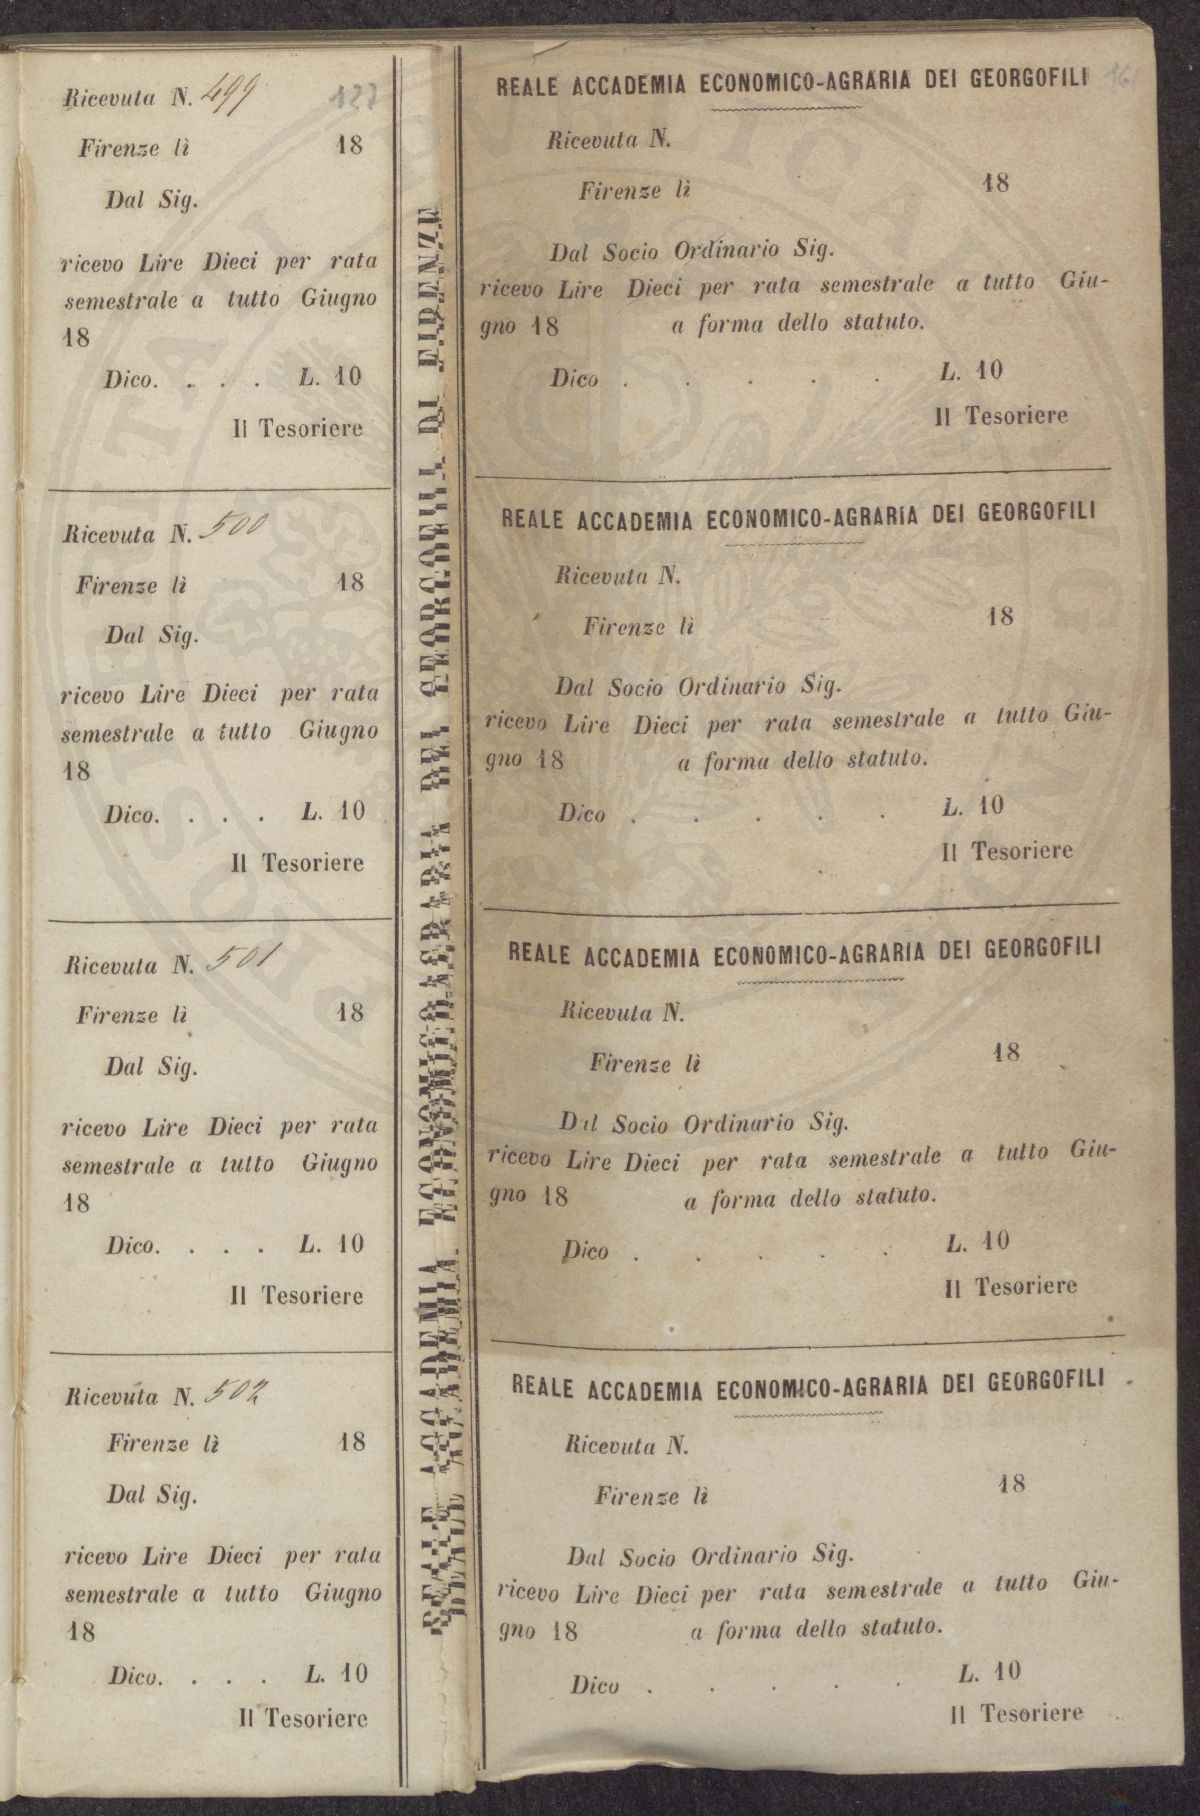 Ricevuta N. 499
127
Firenze lì 18
Dal Sig.
ricevo Lire Dieci per rata
semestrale a tutto Giugno
18
Dico. . . . L. 10
Il Tesoriere
Ricevuta N. 500
Firenze lì 18
Dal Sig.
ricevo Lire Dieci per rata
semestrale a tutto Giugno
18
Dico. . . . L. 10
Il Tesoriere
Ricevuta N. 501
Firenze lì 18
Dal Sig.
ricevo Lire Dieci per rata
semestrale a tutto Giugno
18
Dico. . . . L. 10
Il Tesoriere
Ricevuta N. 502
Firenze lì 18
Dal Sig.
ricevo Lire Dieci per rata
semestrale a tutto Giugno
18
Dico. . . . L. 10
Il Tesoriere
REALE ACCADEMIA ECONOMICO-AGRARIA DEI GEORGOFILI DI FIRENZE
REALE ACCADEMIA ECONOMICO-AGRARIA DEI GEORGOFILI
Ricevuta N.
Firenze lì 18
Dal Socio Ordinario Sig.
ricevo Lire Dieci per rata semestrale a tutto Giu-
gno 18 a forma dello statuto.
Dico . . . . . L. 10
Il Tesoriere
REALE ACCADEMIA ECONOMICO-AGRARIA DEI GEORGOFILI
Ricevuta N.
Firenze lì 18
Dal Socio Ordinario Sig.
ricevo Lire Dieci per rata semestrale a tutto Giu-
gno 18 a forma dello statuto.
Dico . . . . . L. 10
Il Tesoriere
REALE ACCADEMIA ECONOMICO-AGRARIA DEI GEORGOFILI
Ricevuta N.
Firenze lì 18
Dal Socio Ordinario Sig.
ricevo Lire Dieci per rata semestrale a tutto Giu-
gno 18 a forma dello statuto.
Dico . . . . . L. 10
Il Tesoriere
REALE ACCADEMIA ECONOMICO-AGRARIA DEI GEORGOFILI
Ricevuta N.
Firenze lì 18
Dal Socio Ordinario Sig.
ricevo Lire Dieci per rata semestrale a tutto Giu-
gno 18 a forma dello statuto.
Dico . . . . . L. 10
Il Tesoriere